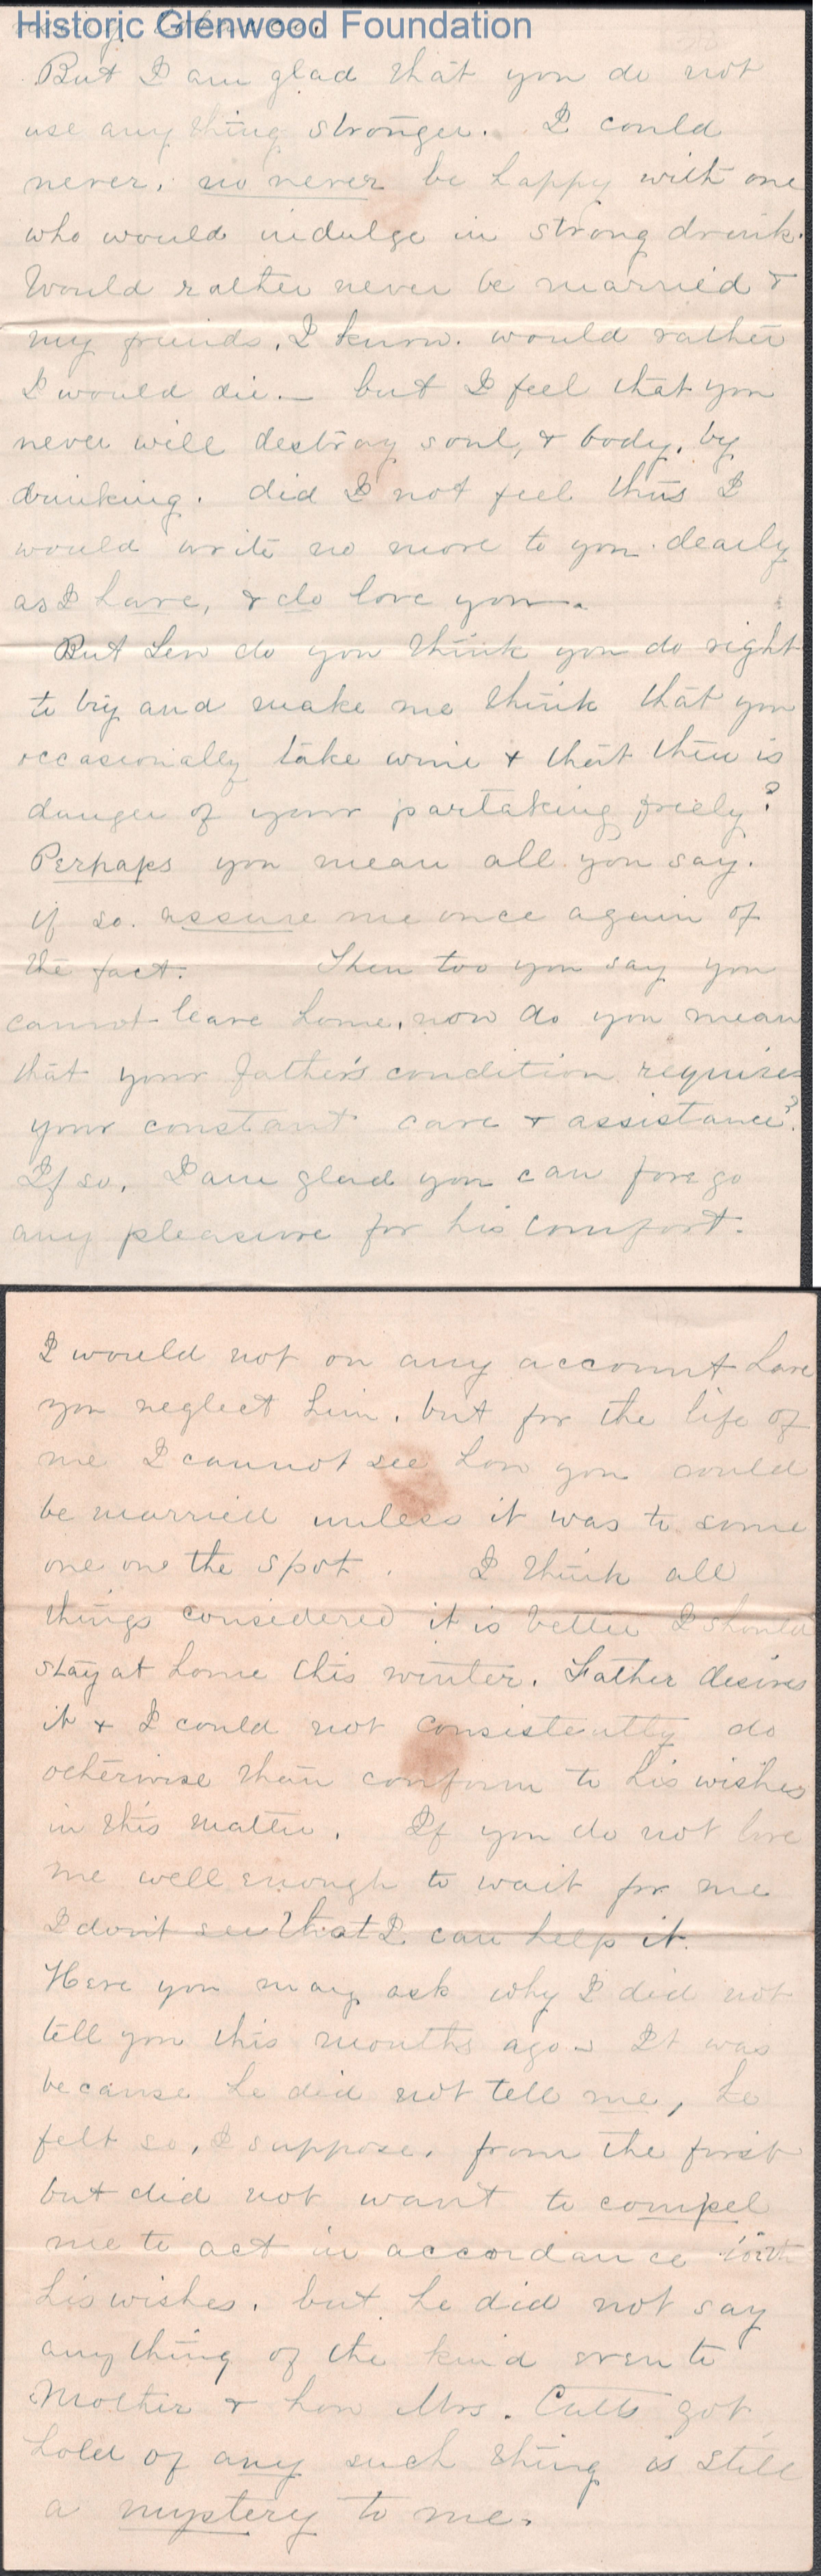 Historic Glenwood Foundation
But I am glad that you do not
use any thing stronger. I could
never, no never be happy with one
who would indulge in strong drink.
Would rather never be married &
my friends, I know. would rather
I would die. — but I feel that you
never will destroy soul, & body, by
drinking. did I not feel thus I
would write no more to you. dearly
as I have, & do love you.
But Lew do you think you do right
to try and make me think that you
occasionally take wine & that there is
danger of your partaking freely?
Perhaps you mean all you say.
if so. assure me once again of
the fact. Then too you say you
cannot leave home, now do you mean
that your father's condition requires
your constant care & assistance?
If so, I am glad you can forego
any pleasure for his comfort.
I would not on any account have
you neglect him, but for the life of
me I cannot see how you could
be married unless it was to some
one on the spot. I think all
things considered it is better I should
stay at home this winter. Father desires
it & I could not consistently do
otherwise than conform to his wishes
in this matter. If you do not love
me well enough to wait for me
I don't see that I can help it.
Here you may ask why I did not
tell you this months ago - It was
because he did not tell me, he
felt so, I suppose, from the first
but did not want to compel
me to act in accordance with
his wishes. but he did not say
anything of the kind even to
Mother & how Mrs. Cutts got
hold of any such thing is still
a mystery to me.